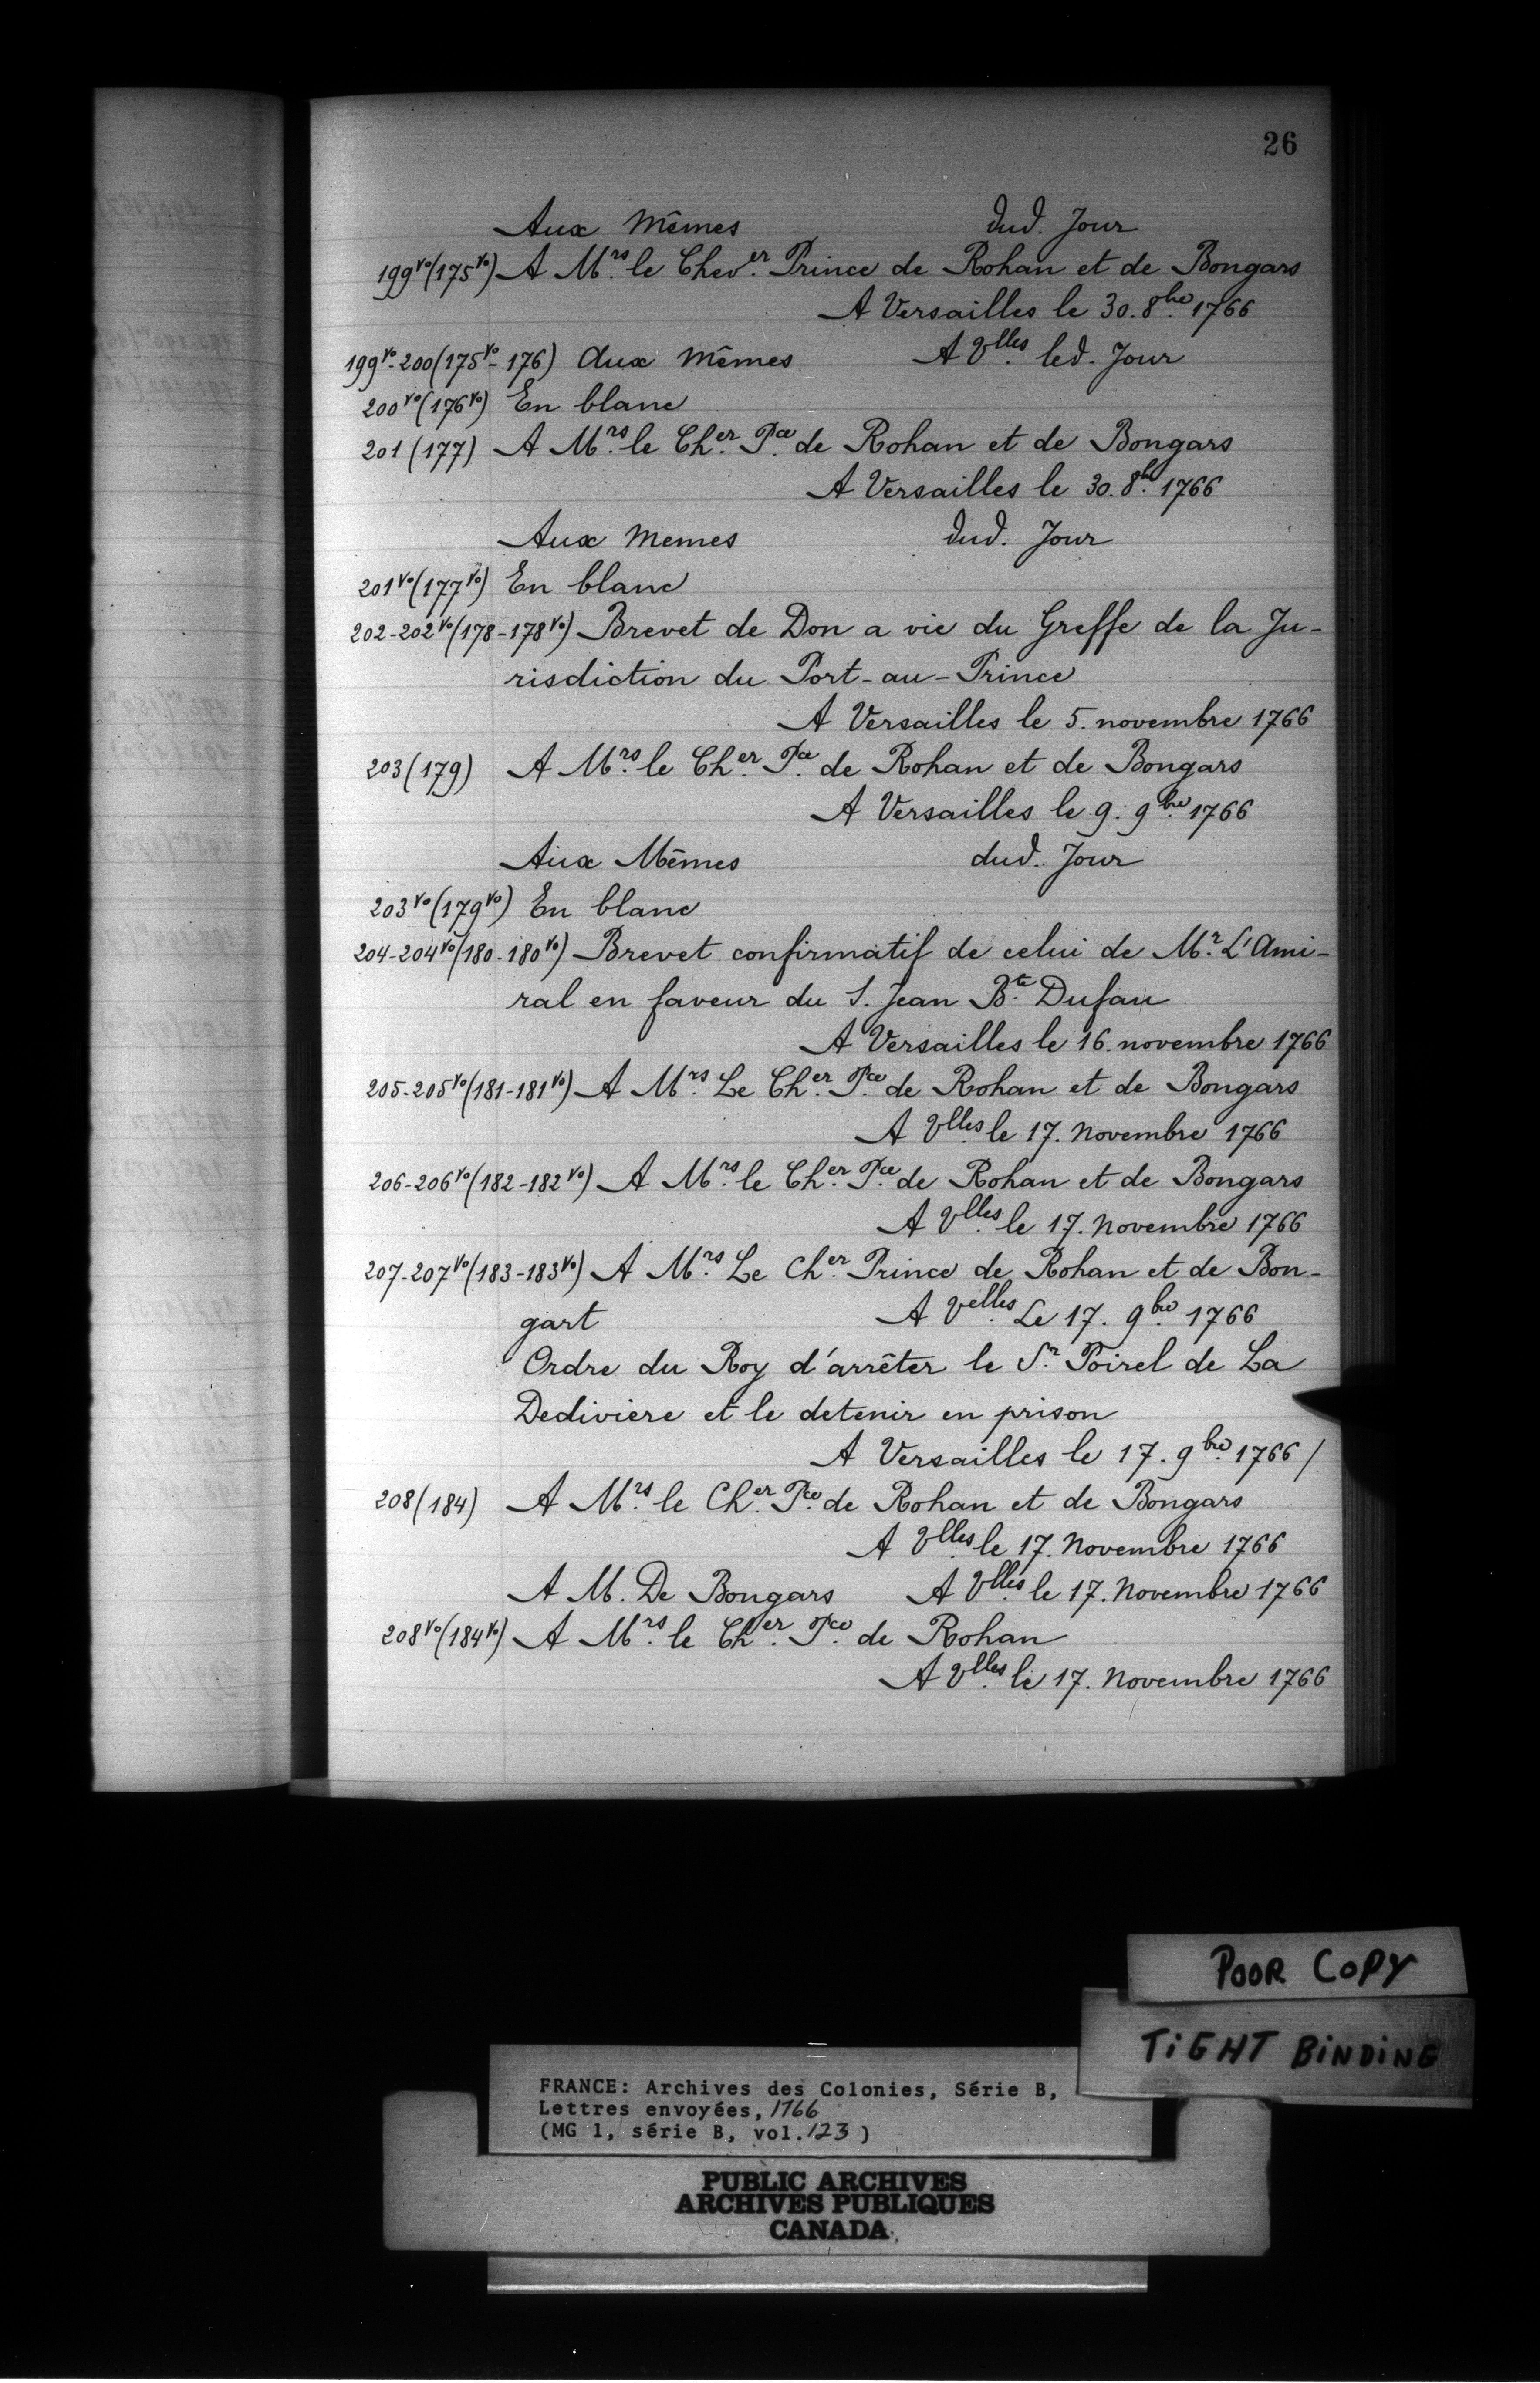 26
Aux Mêmes dud. Jour
199vo(175vo) A Mrs. le Chever. Prince de Rohan et de Bongars
A Versailles le 30. 8bre. 1766
199vo-200(175vo-176) Aux Mêmes A Vlles. led. Jour
200vo(176vo) En blanc
201(177) A Mrs. le Cher. Pce. de Rohan et de Bongars
A Versailles le 30. 8bre. 1766
Aux Memes dud. Jour
201vo(177vo) En blanc
202-202vo(178-178vo) Brevet de Don a vie du Greffe de la Ju-
risdiction du Port-au-Prince
A Versailles le 5. novembre 1766
203(179) A Mrs. le Cher. Pce. de Rohan et de Bongars
A Versailles le 9. 9bre. 1766
Aux Mêmes dud. Jour
203vo(179vo) En blanc
204-204vo(180-180vo) Brevet confirmatif de celui de Mr. L'Ami-
ral en faveur du S. Jean Bte. Dufau
A Versailles le 16. novembre 1766
205-205vo(181-181vo) A Mrs. Le Cher. Pce. de Rohan et de Bongars
A Vlles. le 17. Novembre 1766
206-206vo(182-182vo) A Mrs. le Cher. Pce. de Rohan et de Bongars
A Vlles. le 17. Novembre 1766
207-207vo(183-183vo) A Mrs. Le Cher. Prince de Rohan et de Bon-
gart A Velles. Le 17. 9bre. 1766
Ordre du Roy d'arrêter le Sr. Poirel de La
Dediviere et le detenir en prison
A Versailles le 17. 9bre. 1766 /
208(184) A Mrs. le Cher. Pce. de Rohan et de Bongars
A Vlles. le 17. Novembre 1766
A M. De Bongars A Vlles. le 17. Novembre 1766
208vo(184vo) A Mrs. le Cher. Pce. de Rohan
A Vlles. le 17. Novembre 1766
POOR COPY
TIGHT BINDING
FRANCE: Archives des Colonies, Série B,
Lettres envoyées, 1766
(MG 1, série B, vol. 123)
PUBLIC ARCHIVES
ARCHIVES PUBLIQUES
CANADA